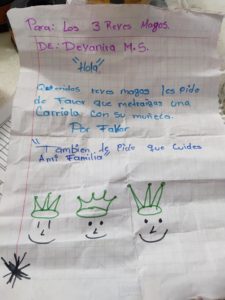 Para: Los 3 Reyes Magos.
DE: Deyanira M.S.
"Hola"
Queridos reyes magos les Pido
de Favor que metraigas una
Carriola con su muñeca.
Por Favor
"Tambien le Pido que Cuides
Ami Familia"